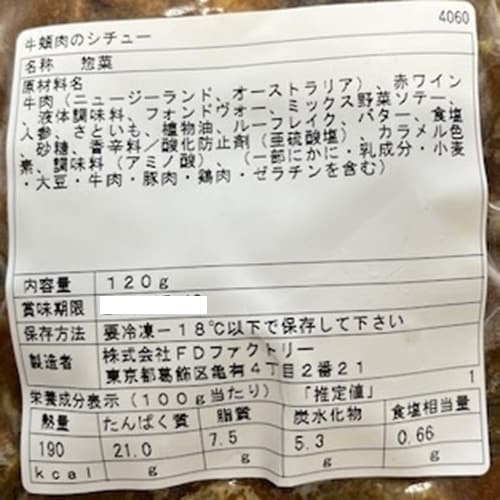 4060
牛頬肉のシチュー
名称　惣菜
原材料名
牛肉（ニュージーランド、オーストラリア）、赤ワイン
、液体調味料、フォンドヴォー、ミックス野菜ソテー、
人参、さといも、植物油、ルーフレイク、バター、食塩
、砂糖、香辛料／酸化防止剤（亜硫酸塩）、カラメル色
素、調味料（アミノ酸）、（一部にかに・乳成分・小麦
・大豆・牛肉・豚肉・鶏肉・ゼラチンを含む）
内容量　120g
賞味期限
保存方法　要冷凍－18℃以下で保存して下さい
製造者　株式会社FDファクトリー
東京都葛飾区亀有4丁目2番21
1
栄養成分表示（100g当たり）　「推定値」
熱量　たんぱく質　脂質　炭水化物　食塩相当量
190　21.0　7.5　5.3　0.66
kcal　g　g　g　g